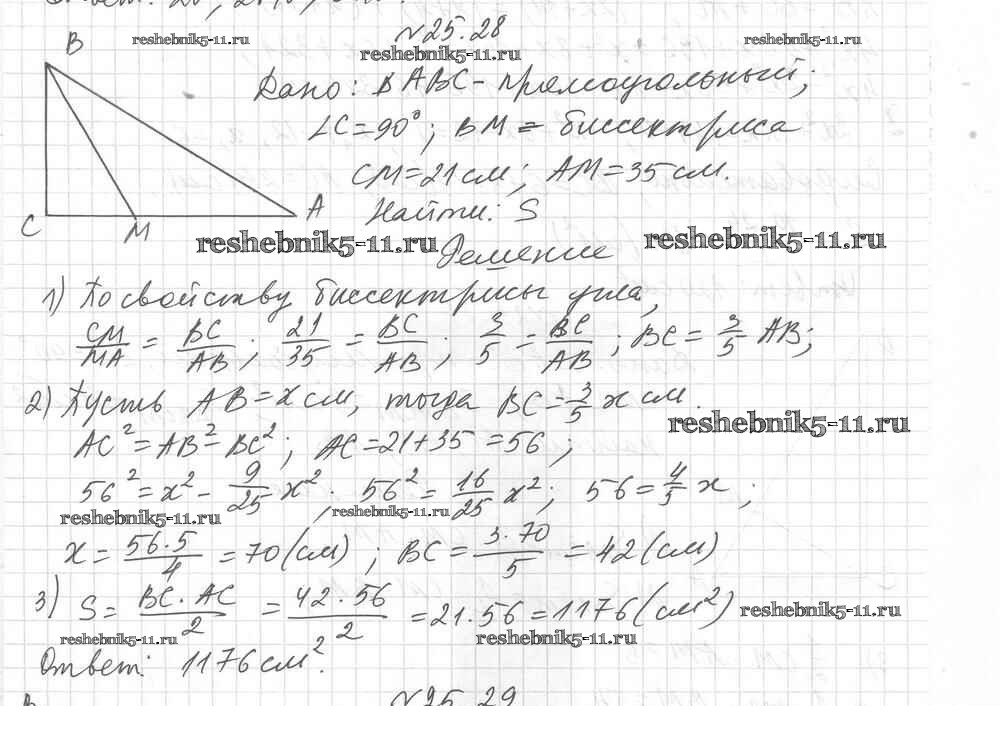 №25.28
B
reshebnik5-11.ru reshebnik5-11.ru reshebnik5-11.ru
Дано: △ABC - прямоугольный;
∠C=90°; BM - биссектриса
CM=21см; AM=35см.
Найти: S
C M A
reshebnik5-11.ru reshebnik5-11.ru
Решение
1) По свойству биссектрисы угла,
CM/MA = BC/AB; 21/35 = BC/AB; 3/5 = BC/AB; BC = 3/5 AB;
2) Пусть AB=x см, тогда BC=3/5 x см.
reshebnik5-11.ru
AC²=AB²-BC²; AC=21+35=56;
56²=x²-9/25 x²; 56²=16/25 x²; 56=4/5 x;
reshebnik5-11.ru reshebnik5-11.ru
x=56·5/4=70(см); BC=3·70/5=42(см)
3) S=BC·AC/2=42·56/2=21·56=1176(см²)
reshebnik5-11.ru
reshebnik5-11.ru reshebnik5-11.ru
Ответ: 1176см².
№25.29